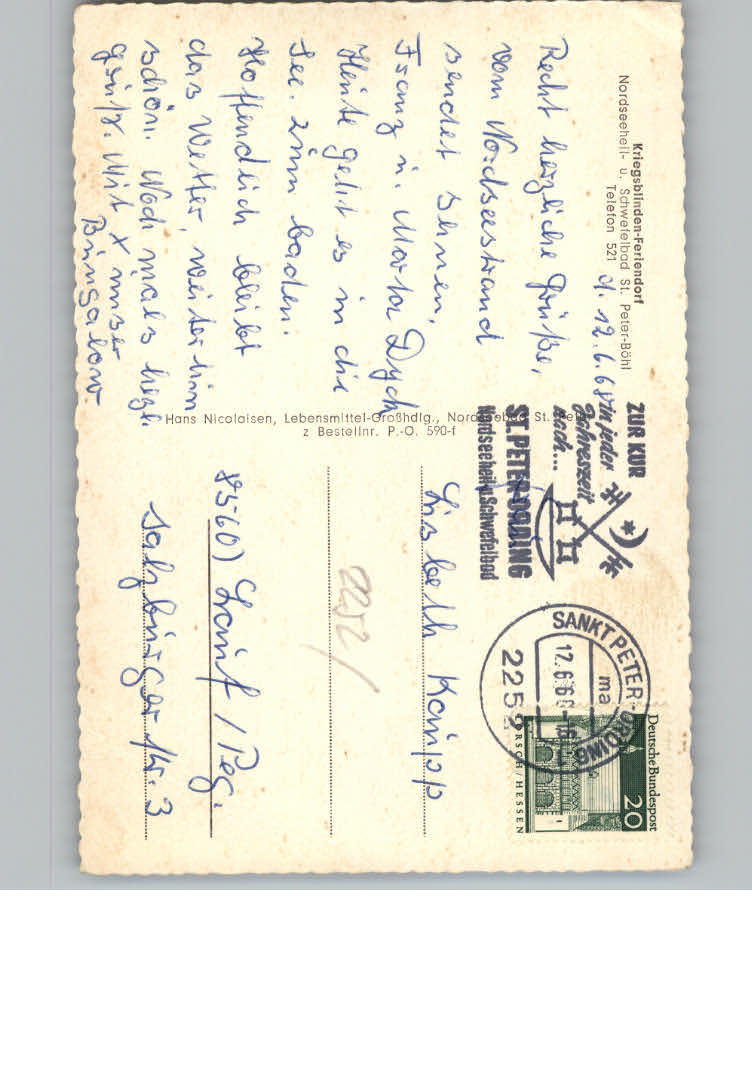 Kriegsblinden-Feriendorf
Nordseeheil- u. Schwefelbad St. Peter-Böhl
Telefon 521
d. 12.6.68
Recht herzliche Grüße,
vom Nordseestrand
sendet Ihnen,
Franz u. Marta Dych
Heute geht es in die
See. zum baden.
Hoffendlich bleibt
das Wetter, weiterhin
schön. Noch mals herzl.
grüße. Mit x unser
Bungalow
Hans Nicolaisen, Lebensmittel-Großhdlg., Nordseebad St. Peter
z Bestellnr. P.-O. 590-f
ZUR KUR
in jeder
Jahreszeit
nach...
ST. PETER-ORDING
Nordseeheil-u.Schwefelbad
SANKT PETER-ORDING
ma
12.6.68-16
2252
Deutsche Bundespost
20
LORSCH / HESSEN
Lisbeth Kaipp
2252/
8560) Lauf / Peg.
Salzburger str. 3